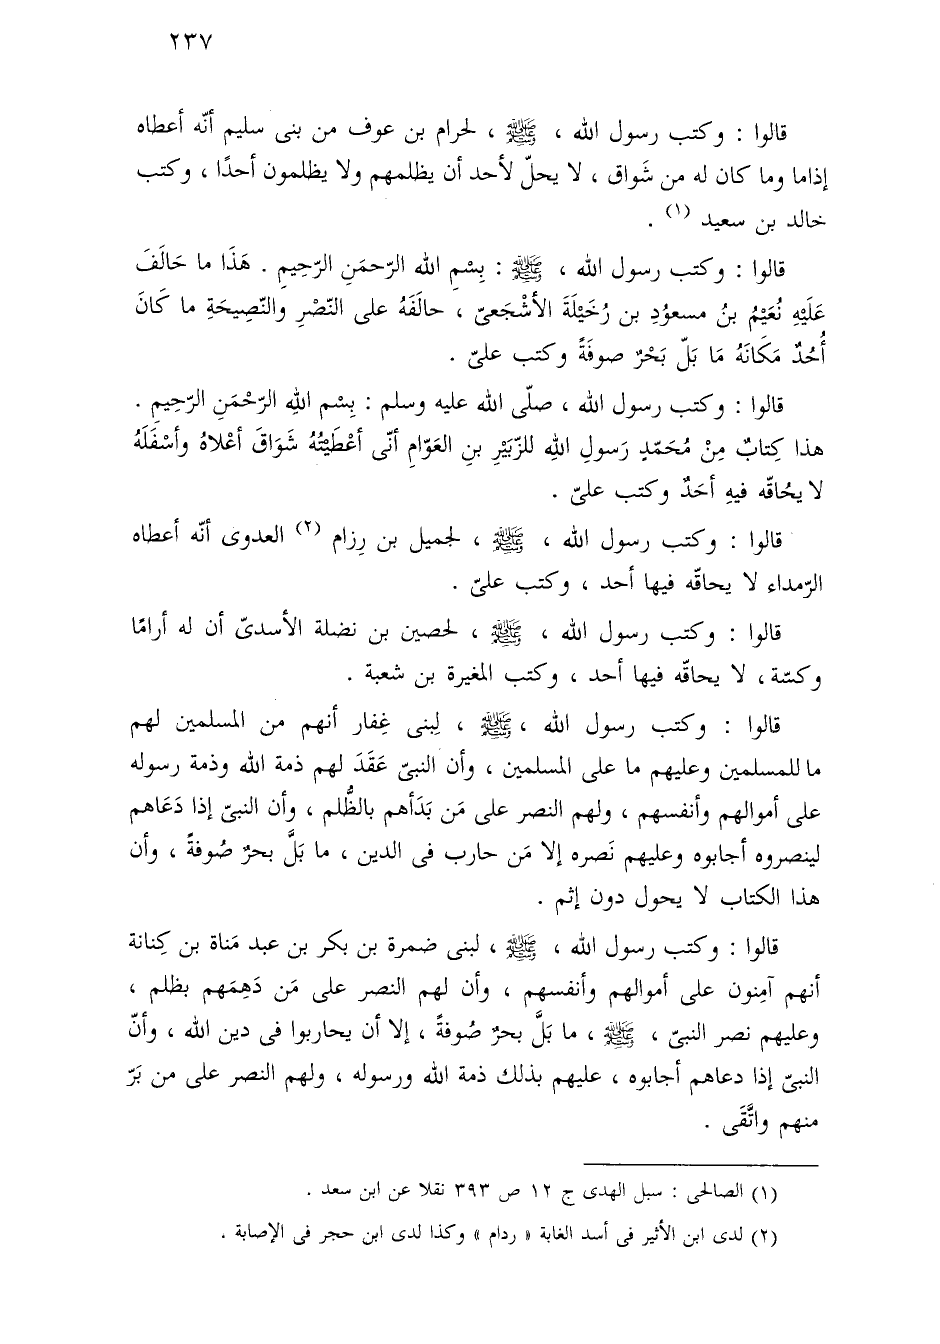 ٢٣٧
قالوا : وكتب رسول الله ، ﷺ ، لحرام بن عوف من بنى سليم أنّه أعطاه
إذاما وما كان له من شَواق ، لا يحلّ لأحد أن يظلمهم ولا يظلمون أحدًا ، وكتب
خالد بن سعيد (١) .
قالوا : وكتب رسول الله ، ﷺ : بِسْمِ الله الرّحمَنِ الرّحِيمِ . هَذَا ما حَالَفَ
عَلَيْهِ نُعَيْمُ بنُ مسعوُدِ بن رُخَيْلَةَ الأشْجَعىّ ، حالَفَهُ على النّصْرِ والنّصِيحَةِ ما كَانَ
أُحُدٌ مَكَانَهُ مَا بَلّ بَحْرٌ صوفَةً وكتب علىّ .
قالوا : وكتب رسول الله ، صلّى الله عليه وسلم : بِسْم اللهِ الرّحْمَنِ الرّحِيمِ .
هذا كِتابٌ مِنْ مُحَمّدٍ رَسولِ اللهِ للزّبَيْرِ بنِ العَوّامِ أنّى أعْطَيْتُهُ شَوَاقَ أعْلاهُ وأسْفَلَهُ
لا يحُاقّه فيهِ أحَدٌ وكتب علىّ .
قالوا : وكتب رسول الله ، ﷺ ، لجميل بن رِزام (٢) العدوى أنّه أعطاه
الرّمداء لا يحاقّه فيها أحد ، وكتب علىّ .
قالوا : وكتب رسول الله ، ﷺ ، لحصين بن نضلة الأسدىّ أن له أرامًا
وكسّة ، لا يحاقّه فيها أحد ، وكتب المغيرة بن شعبة .
قالوا : وكتب رسول الله ، ﷺ ، لِبنى غِفار أنهم من المسلمين لهم
ما للمسلمين وعليهم ما على المسلمين ، وأن النبىّ عَقَدَ لهم ذمة الله وذمة رسوله
على أموالهم وأنفسهم ، ولهم النصر على مَن بَدَأهم بالظُّلم ، وأن النبىّ إذا دَعَاهم
لينصروه أجابوه وعليهم نَصره إلا مَن حارب فى الدين ، ما بَلَّ بحرٌ صُوفةً ، وأن
هذا الكتاب لا يحول دون إثم .
قالوا : وكتب رسول الله ، ﷺ ، لبنى ضمرة بن بكر بن عبد مَناة بن كِنانة
أنهم آمِنون على أموالهم وأنفسهم ، وأن لهم النصر على مَن دَهِمَهم بظلم ،
وعليهم نصر النبىّ ، ﷺ ، ما بَلَّ بحرٌ صُوفةً ، إلا أن يحاربوا فى دين الله ، وأنّ
النبىّ إذا دعاهم أجابوه ، عليهم بذلك ذمة الله ورسوله ، ولهم النصر على من بَرّ
منهم واتَّقَى .
(١) الصالحى : سبل الهدى ج ١٢ ص ٣٩٣ نقلا عن ابن سعد .
(٢) لدى ابن الأثير فى أسد الغابة « ردام » وكذا لدى ابن حجر فى الإصابة .